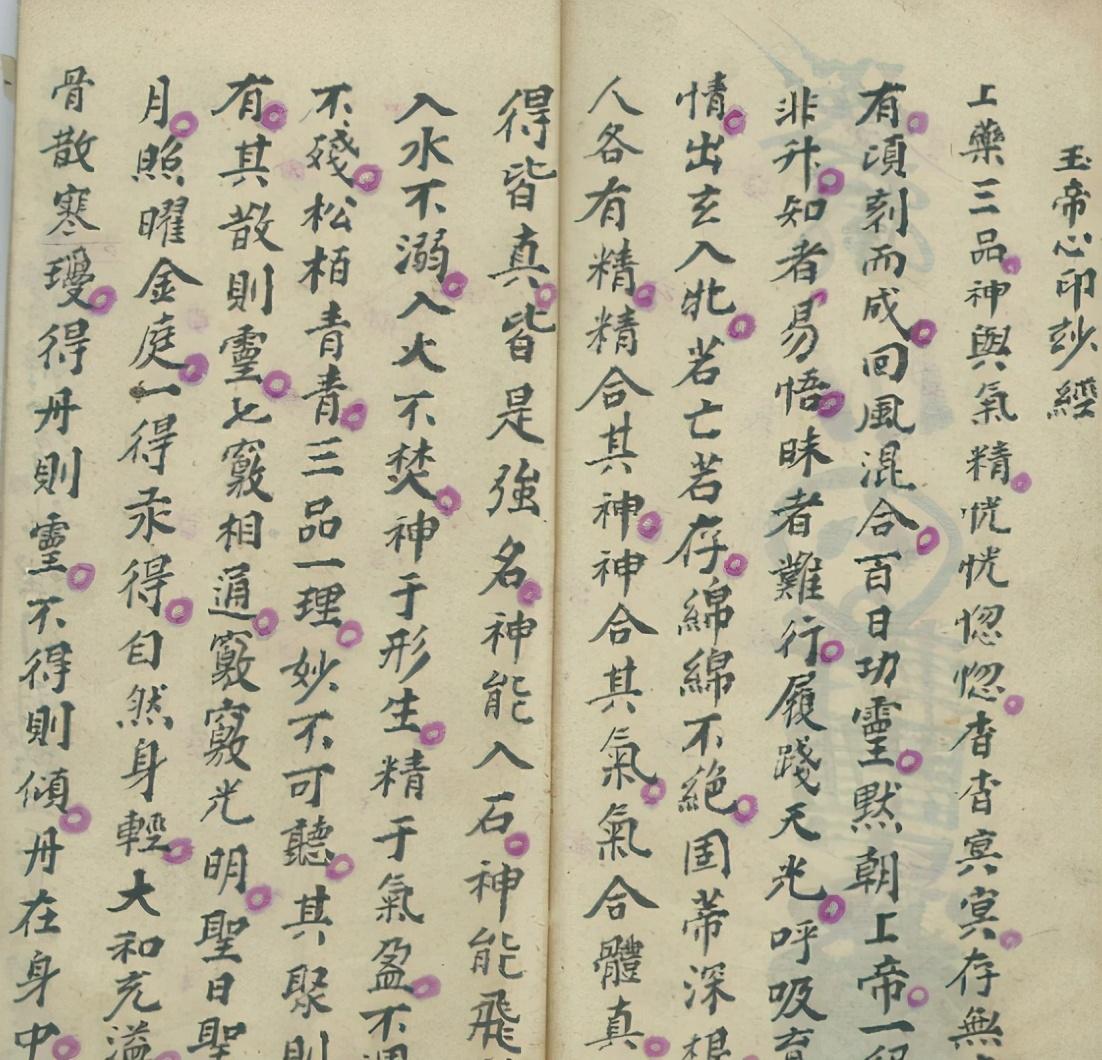 玉帝心印玅經
上藥三品神與氣精恍恍惚惚杳杳冥冥存無
有頃刻而成回風混合百日功靈默朝上帝一
非升知者易悟昧者難行履踐天光呼吸育
情出玄入牝若亡若存綿綿不絕固蒂深根
人各有精精合其神神合其氣氣合體真
得皆真皆是強名神能入石神能飛
入水不溺入火不焚神于形生精于氣盈不凋
不殘松栢青青三品一理妙不可聽其聚則
有其散則靈七竅相通竅竅光明聖日聖
月照曜金庭一得永得自然身輕大和充溢
骨散寒瓊得丹則靈不得則傾丹在身中